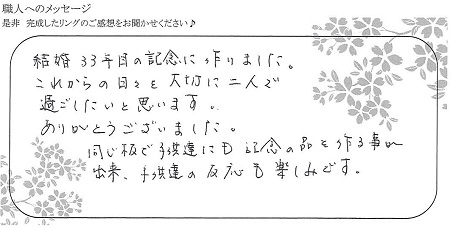 職人へのメッセージ
是非 完成したリングのご感想をお聞かせください♪
結婚 33年目の記念に作りました。
これからの日々を大切に二人で
過ごしたいと思います。
ありがとうございました。
同じ板で子供達にも記念の品を作る事が
出来、子供達の反応も楽しみです。